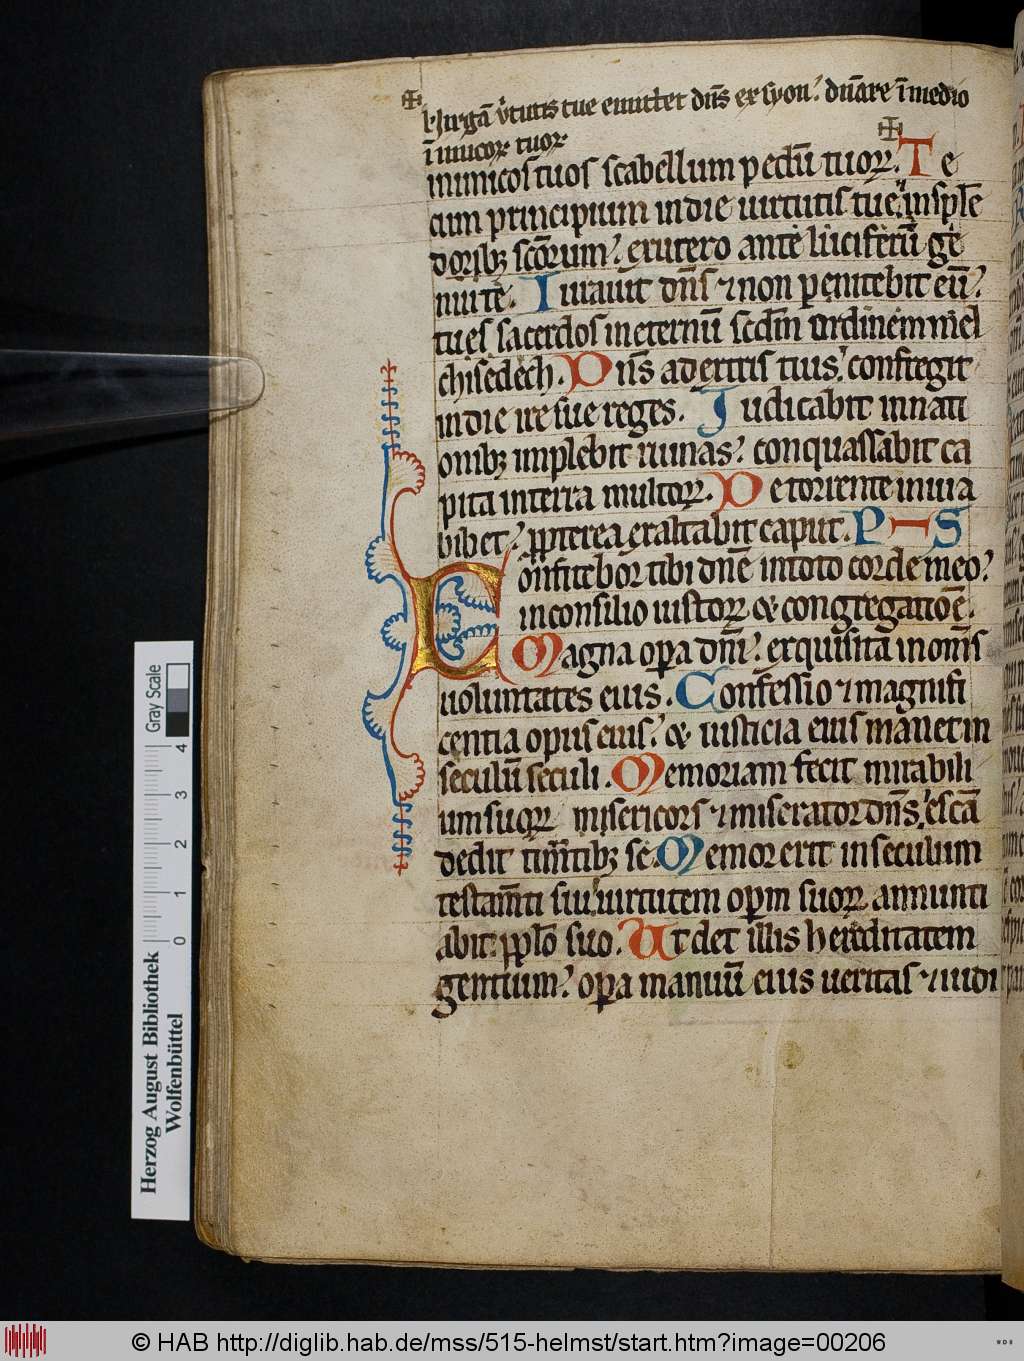 ✠ Uirgā v̄tutis tue emittet dn̄s ex syon? dn̄are ī medio
ī imicoꝝ tuoꝝ
inimicos tuos scabellum pedū tuoꝝ. Te
cum principium in die uirtutis tue in splē
doribꝫ sc̄orum? ex utero ante luciferū ge
nui te. Iurauit dn̄s ⁊ non penitebit eū?
tu es sacerdos in eternū scd̄m ordinem mel
chisedech. Dn̄s a dextris tuis confregit
in die ire sue reges. Iudicabit in nati
onibꝫ implebit ruinas? conquassabit ca
pita in terra multoꝝ. De torrente in uia
bibet? ꝓpterea exaltabit caput. P S
Confitebor tibi dn̄e in toto corde meo?
in consilio iustoꝝ & congregatiōe.
Magna oꝑa dn̄i? exquisita in om̄s
uoluntates eius. Confessio ⁊ magnifi
centia opus eius? & iusticia eius manet in
seculū seculi. Memoriam fecit mirabili
um suoꝝ misericors ⁊ miserator dn̄s escā
dedit tim̄tibꝫ se. Memor erit in seculum
testam̄ti sui uirtutem oꝑm suoꝝ annunti
abit ꝓplo suo. Ut det illis hereditatem
gentium? oꝑa manuū eius ueritas ⁊ iudi
Herzog August Bibliothek
Wolfenbüttel
0 1 2 3 4
Gray Scale
© HAB http://diglib.hab.de/mss/515-helmst/start.htm?image=00206